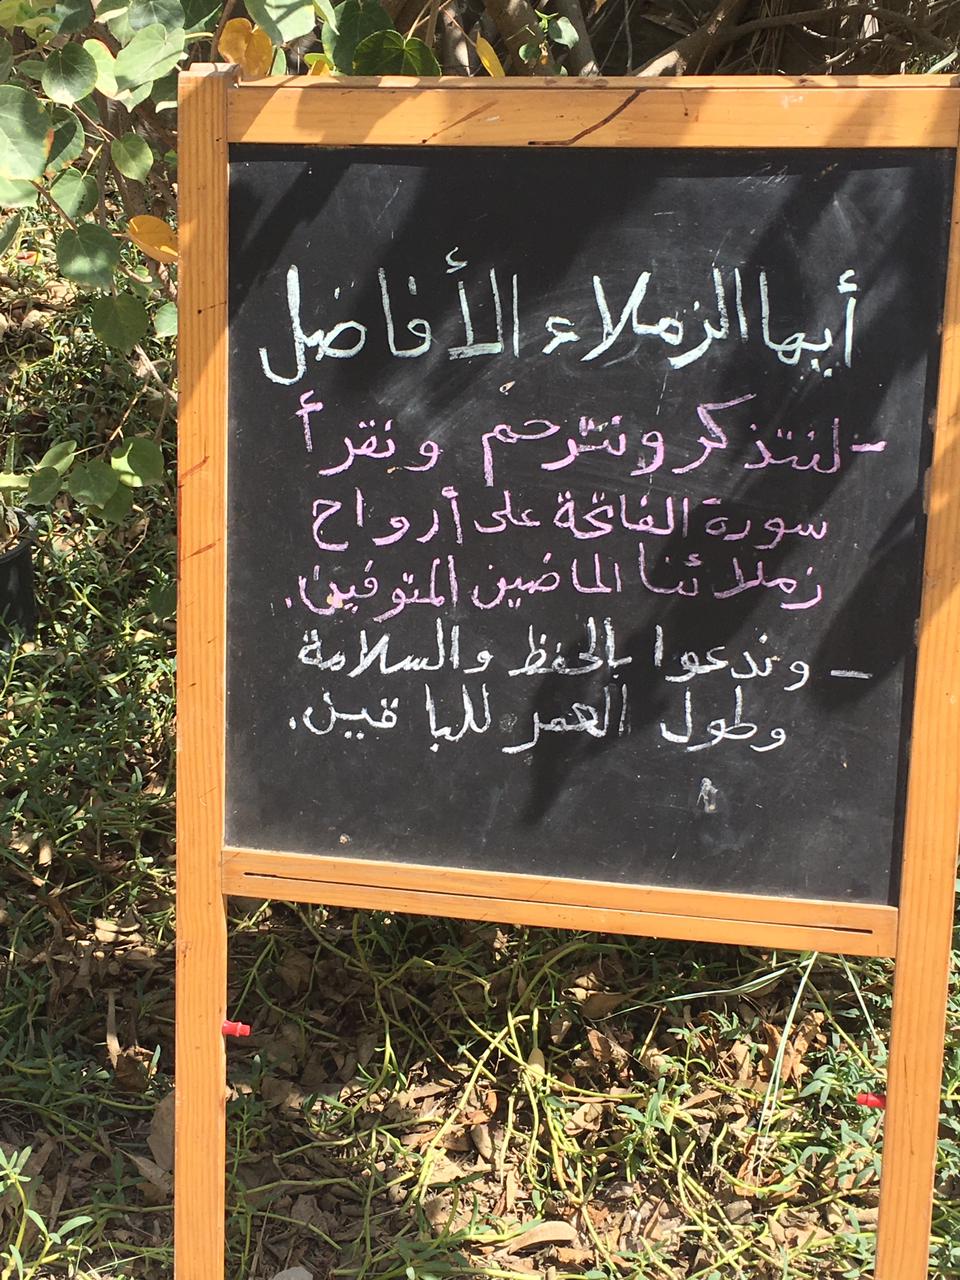 أيها الزملاء الأفاضل
- لنتذكر ونترحم ونقرأ
سورة الفاتحة على أرواح
زملائنا الماضين المتوفين.
- وندعوا بالحفظ والسلامة
وطول العمر للباقين.